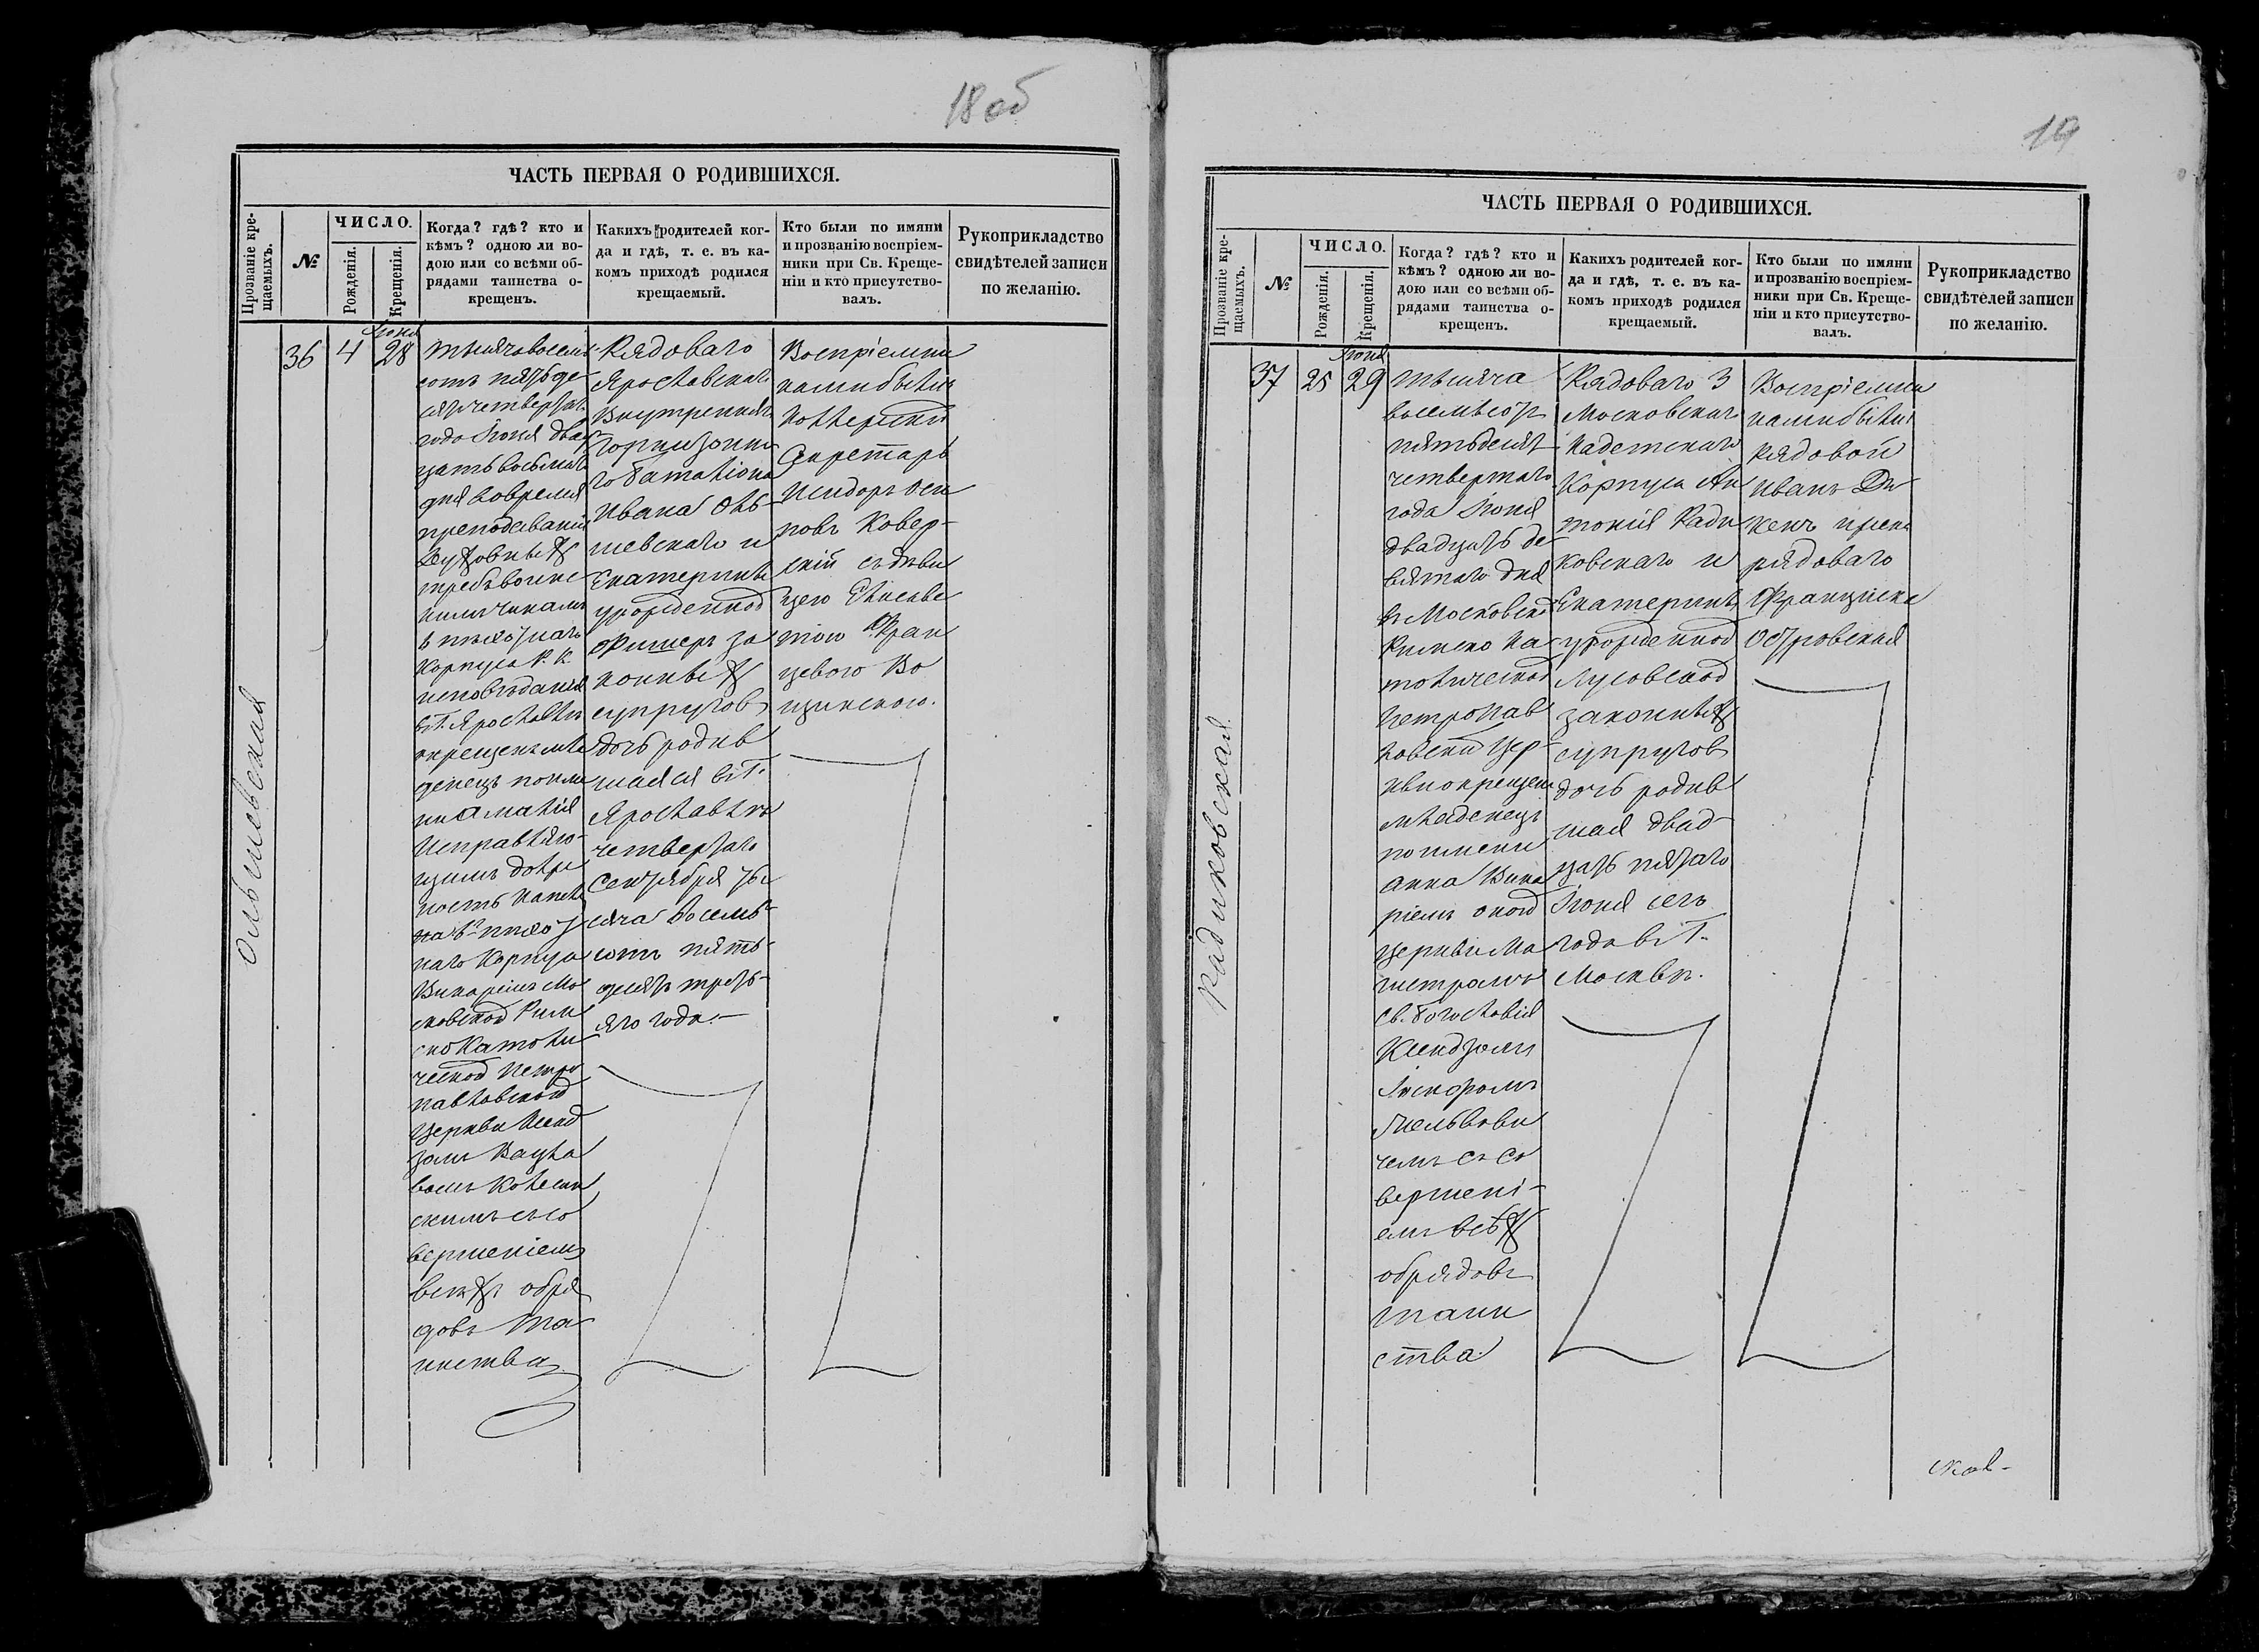 18 об
ЧАСТЬ ПЕРВАЯ О РОДИВШИХСЯ.
Прозваніе кре-
щаемыхъ.
№
ЧИСЛО.
Рожденія.
Крещенія.
Когда? гдѣ? кто и
кѣмъ? одною ли во-
дою или со всѣми об-
рядами таинства о-
крещенъ.
Какихъ родителей ког-
да и гдѣ, т. е. въ ка-
комъ приходѣ родился
крещаемый.
Кто были по имяни
и прозванію воспріем-
ники при Св. Креще-
ніи и кто присутство-
валъ.
Рукоприкладство
свидѣтелей записи
по желанію.
Ольшевская
36
4
Іюня
28
тысяча восемь
сотъ пятьде
сятъ четвертаго
года Іюня двад
цать восьмаго
дня во время
преподаванія
Духовныхъ
требъ воинс
кимъ чинамъ
6 пѣхотнаго
Корпуса Р. К.
исповѣданія
в Г. Ярославлѣ
окрещенъ мла
денецъ по име
ни Амалія
Исправляю-
щимъ долж
ность Капела
на 6го пѣхот
наго Корпуса
Викаріемъ Мо
сковской Рим
ско Католи
ческой Петро
павловской
Церкви Ксенд
зомъ Вацла
вомъ Колесин
скимъ съ со
вершеніемъ
всѣхъ обря
довъ таи
инства
Рядоваго
Ярославскаго
Внутренняго
Горнизонна
го баталіона
Ивана Оль-
шевскаго и
Екатерины
урожденной
Фишеръ за
конныхъ
супруговъ
дочь родив
шаяся в Г.
Ярославлѣ
четвертаго
Сентября ты
сяча восемь
сотъ пять
десятъ треть-
яго года.
Воспріемни
ками были
Коллежскій
Секретарь
Исидоръ Оси
повъ Ковер-
скій съ дѣви
цею Елисаве
тою Фран
цевою Во
щинскою.
19
ЧАСТЬ ПЕРВАЯ О РОДИВШИХСЯ.
Прозваніе кре-
щаемыхъ.
№
ЧИСЛО.
Рожденія.
Крещенія.
Когда? гдѣ? кто и
кѣмъ? одною ли во-
дою или со всѣми об-
рядами таинства о-
крещенъ.
Какихъ родителей ког-
да и гдѣ, т. е. въ ка-
комъ приходѣ родился
крещаемый.
Кто были по имяни
и прозванію воспріем-
ники при Св. Креще-
ніи и кто присутство-
валъ.
Рукоприкладство
свидѣтелей записи
по желанію.
Радиковская.
37
25
Іюня
29
тысяча
восемьсотъ
пятьдесятъ
четвертаго
года Іюня
двадцать де
вятаго дня
въ Московской
Римско Ка
толической
Петропав
ловской Цер-
кви окрещенъ
младенецъ
по имени
Анна Вика
ріемъ оной
Церкви Ма
гистромъ
Св. Богословія
Ксендзомъ
чемъ съ со
вершені-
емъ всѣхъ
обрядовъ
таин
ства.
Рядоваго 3
Московскаго
Кадетскаго
Корпуса Ан
тонія Ради
ковскаго и
Екатерины
урожденной
Лусовской
законныхъ
супруговъ
дочь родив
шая двад-
цать пятаго
Іюня сего
года в Г.
Москвѣ.
Воспріемни
ками были
рядовой
Иванъ Ди
кенъ и жена
рядоваго
Франциска
Островская